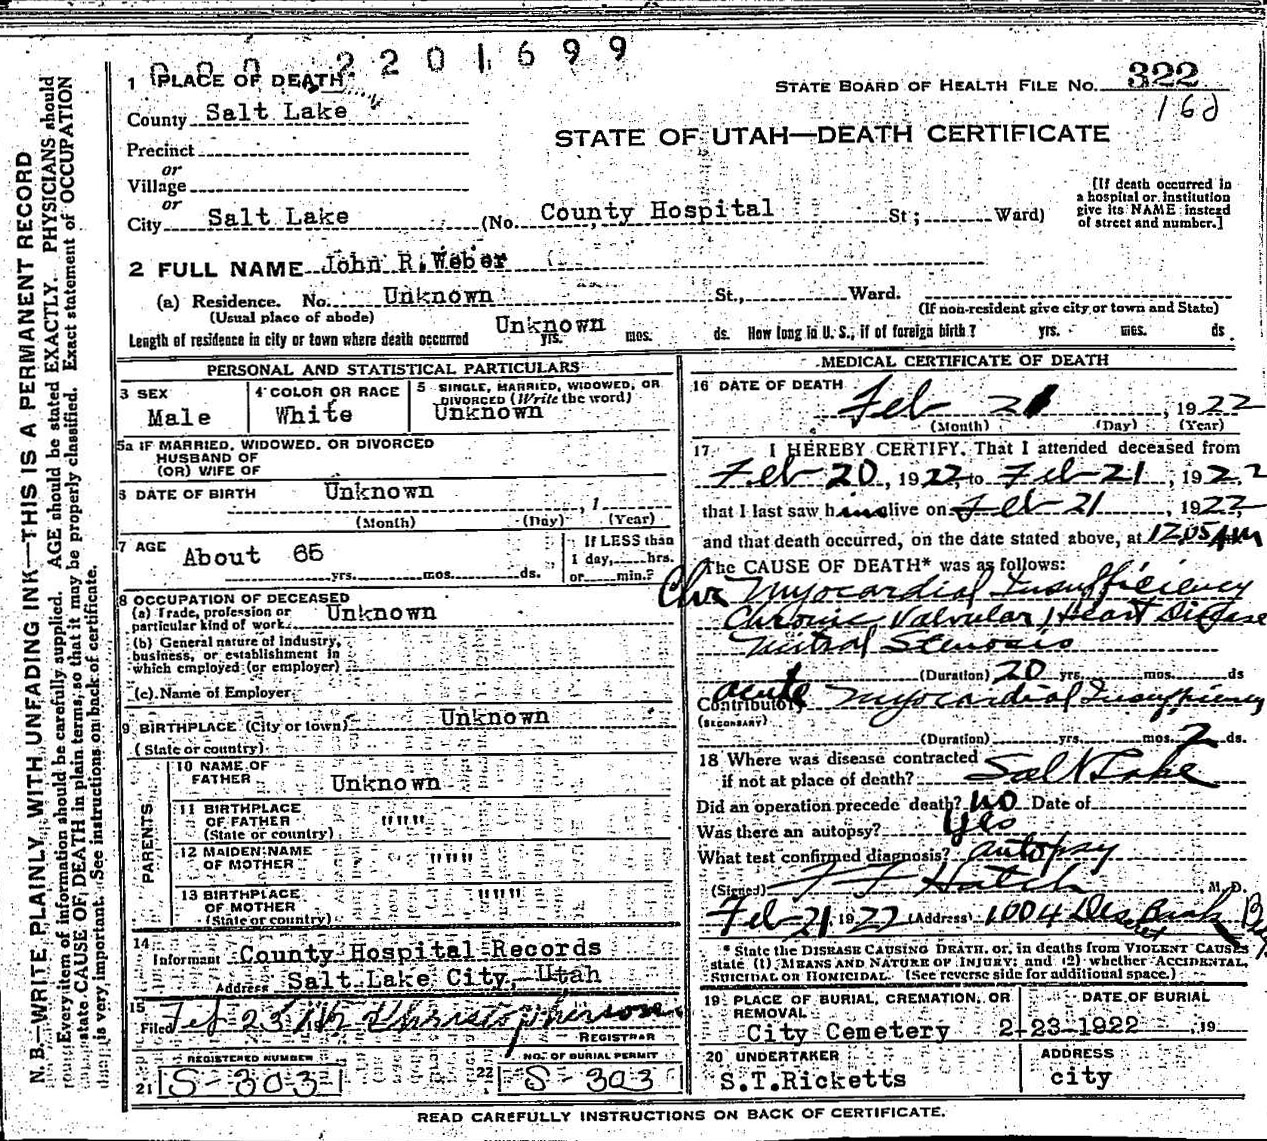 000 2201699
1 PLACE OF DEATH
STATE BOARD OF HEALTH FILE NO. 322
160
County Salt Lake
STATE OF UTAH—DEATH CERTIFICATE
Precinct
or
Village
or
City Salt Lake (No. County Hospital St; Ward)
[If death occurred in
a hospital or institution
give its NAME instead
of street and number.]
2 FULL NAME John R. Weber
(a) Residence. No. Unknown St., Ward.
(Usual place of abode)
(If non-resident give city or town and State)
Length of residence in city or town where death occurred Unknown yrs. mos. ds. How long in U. S., if of foreign birth? yrs. mos. ds.
PERSONAL AND STATISTICAL PARTICULARS
3 SEX
Male
4 COLOR OR RACE
White
5 SINGLE, MARRIED, WIDOWED, OR
DIVORCED (Write the word)
Unknown
5a IF MARRIED, WIDOWED, OR DIVORCED
HUSBAND OF
(OR) WIFE OF
6 DATE OF BIRTH Unknown , 1
(Month) (Day) (Year)
7 AGE About 65
yrs. mos. ds.
If LESS than
1 day, hrs.
or min.?
8 OCCUPATION OF DECEASED
(a) Trade, profession or
particular kind of work Unknown
(b) General nature of Industry,
business, or establishment in
which employed (or employer)
(c) Name of Employer
9 BIRTHPLACE (City or town) Unknown
(State or country)
PARENTS
10 NAME OF
FATHER Unknown
11 BIRTHPLACE
OF FATHER """
(State or country)
12 MAIDEN NAME
OF MOTHER """
13 BIRTHPLACE
OF MOTHER """
(State or country)
14
Informant County Hospital Records
Address Salt Lake City, Utah
15
Filed Feb 23 Christopherson
REGISTRAR
21 REGISTERED NUMBER
S-303
22 NO. OF BURIAL PERMIT
S-303
MEDICAL CERTIFICATE OF DEATH
16 DATE OF DEATH
Feb 21, 1922
(Month) (Day) (Year)
17 I HEREBY CERTIFY, That I attended deceased from
Feb-20, 1922 to Feb-21, 1922
that I last saw him alive on Feb 21, 1922
and that death occurred, on the date stated above, at 12.05 AM
The CAUSE OF DEATH* was as follows:
Chr Myocardial Insufficiency
Chronic Valvular Heart Disease
Mitral Stenosis
(Duration) 20 yrs. mos. ds
Contributory acute Myocardial Insufficiency
(SECONDARY)
(Duration) yrs. mos. 2 ds.
18 Where was disease contracted
if not at place of death? Salt Lake
Did an operation precede death? no Date of
Was there an autopsy? yes
What test confirmed diagnosis? autopsy
(Signed) F F Hatch M. D.
Feb-21, 1922 (Address) 1004 Deseret Bank Bldg
* State the DISEASE CAUSING DEATH, or, in deaths from VIOLENT CAUSES
state (1) MEANS AND NATURE OF INJURY; and (2) whether ACCIDENTAL,
SUICIDAL OR HOMICIDAL. (See reverse side for additional space.)
19 PLACE OF BURIAL, CREMATION, OR
REMOVAL
City Cemetery
DATE OF BURIAL
2-23-1922 , 19
20 UNDERTAKER
S.T.Ricketts
ADDRESS
city
READ CAREFULLY INSTRUCTIONS ON BACK OF CERTIFICATE.
N. B.—WRITE PLAINLY, WITH UNFADING INK—THIS IS A PERMANENT RECORD
Every item of information should be carefully supplied. AGE should be stated EXACTLY. PHYSICIANS should
state CAUSE OF DEATH in plain terms, so that it may be properly classified. Exact statement of OCCUPATION
is very important. (See instructions on back of certificate.